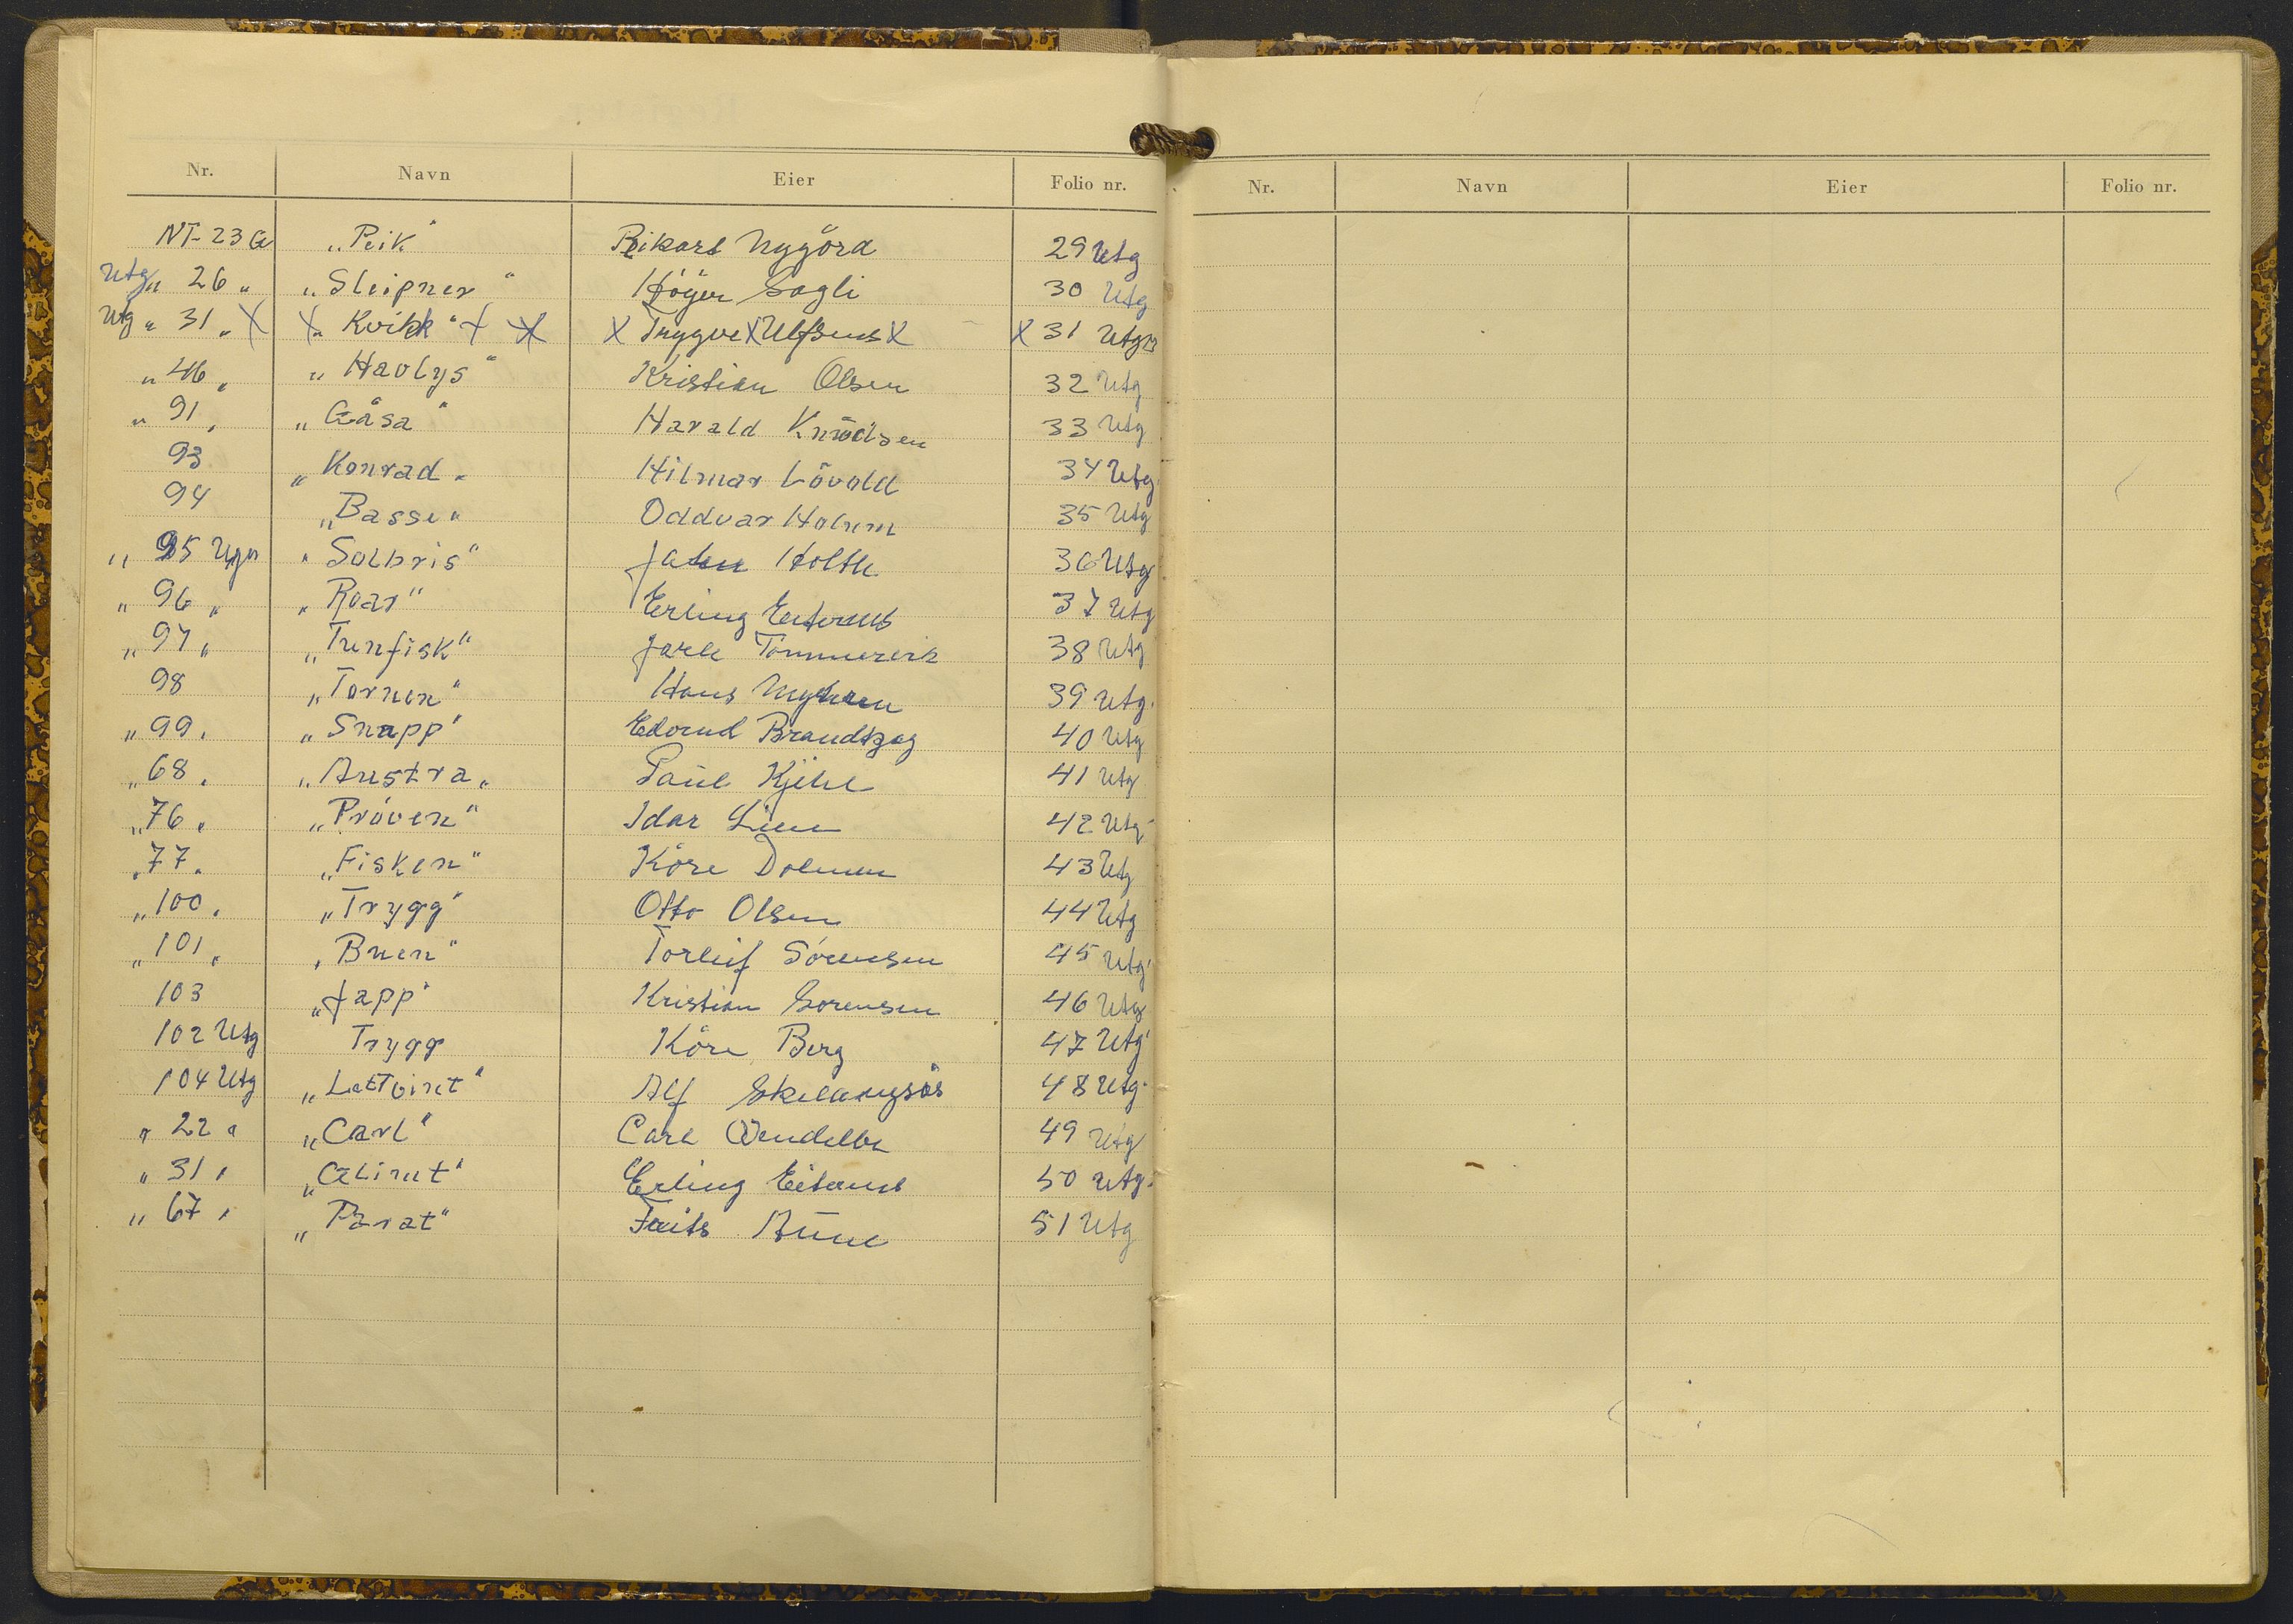 Nr. Navn Eier Folio nr.
NT-23 G „Peik" Rikart Nygård 29 Utg
Utg „ 26 „ „Sleipner" Höger Sagli 30 Utg
Utg „ 31 „ X X „Kvikk" X X X Trygve X Ulfsens X X 31 Utg
„ 46 „ „Havlys" Kristian Olsen 32 Utg
„ 91 „ „Gåsa" Harald Knudsen 33 Utg
93 „Konrad„ Hilmar Lövold 34 Utg.
94 „Basse„ Oddvar Holum 35 Utg
„ 95 „Solbris" Holthe 36 Utg
„ 96 „ „Roar" Erling 37 Utg
„ 97 „ „Tunfisk" Jarle 38 Utg
98 „Tornen" Hans 39 Utg.
„ 99 „ „Snapp" Edvind Brandtzæg 40 Utg
„ 68 „ „Austra„ Paul 41 Utg
„ 76 „ „Pröven" Idar Lien 42 Utg
„ 77 „ „Fisken" Kåre Dolmen 43 Utg
„ 100 „ „Trygg" Otto Olsen 44 Utg
„ 101 „ „Buen" Torleif Sörensen 45 Utg
103 „Japp" Kristian Sorensen 46 Utg
102 Utg Trygg Kåre Berg 47 Utg
104 Utg „Lettvint" Alf 48 Utg.
„ 22 „ „Carl" Carl Wendelbo 49 Utg
„ 31 „ „Glimt" Erling 50 Utg.
„ 67 „ „Parat" Frits Aune 51 Utg
Nr. Navn Eier Folio nr.